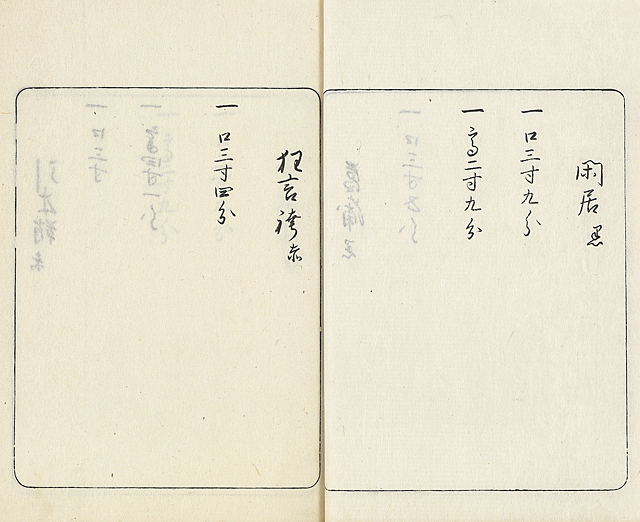 閑居 黒
一 口三寸九分
一 高二寸九分
狂言袴 赤
一 口三寸四分